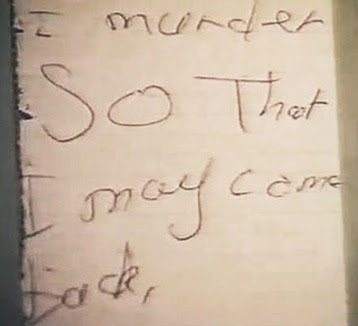 I murder
SO That
I may come
back,